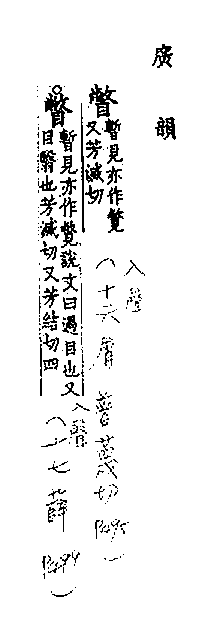 廣韻
瞥 暫見亦作覽
又芳滅切
入聲
(十六屑 普蔑切
瞥 暫見亦作覽說文曰過目也又
目翳也芳滅切又芳結切四
入聲
(十七薛